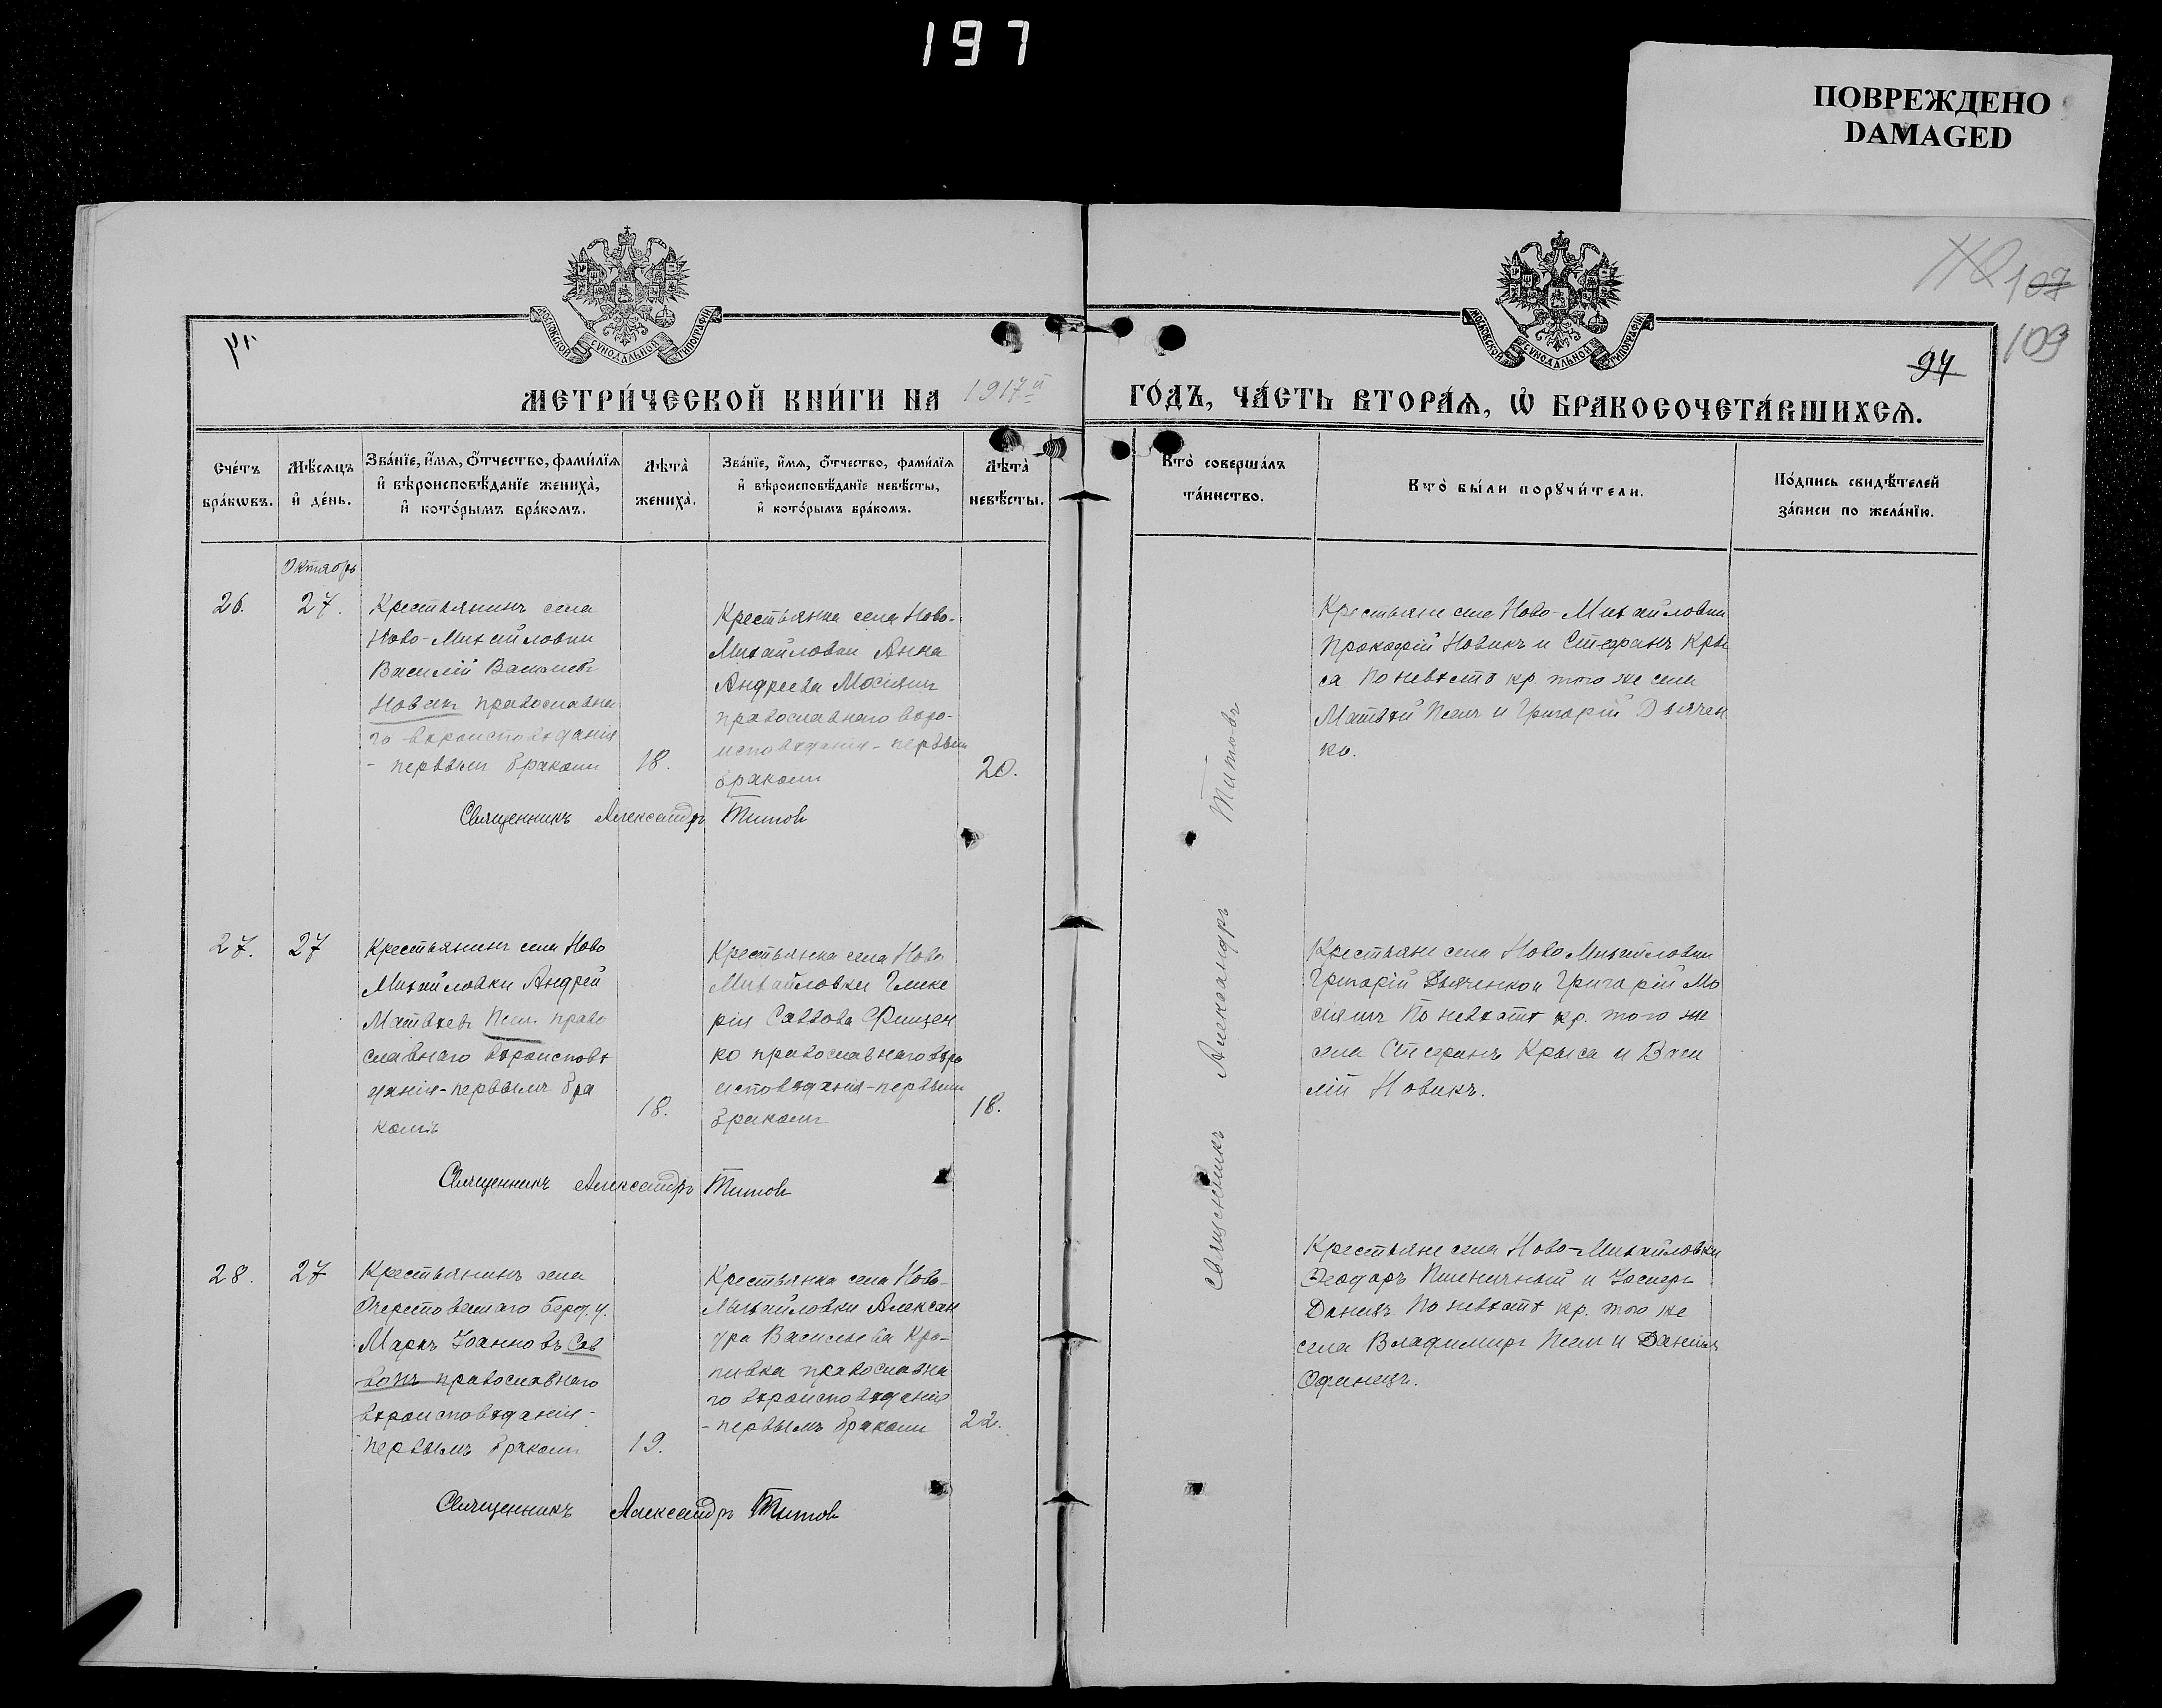 197
ПОВРЕЖДЕНО
DAMAGED
107
103
94
МОСКОВСКОЙ СѴНОДАЛЬНОЙ ТИПОГРАФІИ
МОСКОВСКОЙ СѴНОДАЛЬНОЙ ТИПОГРАФІИ
МЕТРИ́ЧЕСКОЙ КНИ́ГИ НА 1917й ГО́ДЪ, ЧА́СТЬ ВТОРА́Ѧ, Ѡ҆ БРАКОСОЧЕТА́ВШИХСѦ.
Сче́тъ бра́кѡвъ.
Мѣ́сѧцъ и҆ де́нь.
Зва́нїе, и҆́мѧ, ѻ҆́тчество, фами́лїѧ
и҆ вѣроисповѣ́данїе жениха̀,
и҆ кото́рымъ бра́комъ.
Лѣта̀ жениха̀.
Зва́нїе, и҆́мѧ, ѻ҆́тчество, фами́лїѧ
и҆ вѣроисповѣ́данїе невѣ́сты,
и҆ кото́рымъ бра́комъ.
Лѣта̀ невѣ́сты.
Кто̀ соверша́лъ
та́инство.
Кто̀ бы́ли порꙋчи́тели.
По́дпись свидѣ́телей
за́писи по жела́нїю.
Октябрь
26.
27.
Крестьянинъ села
Ново-Михайловки
Василій Васильевъ
Новикъ православна
го вѣроисповѣданія
- первымъ бракомъ
18.
Крестьянка села Ново-
Михайловки Анна
Андреева Мосіянъ
православнаго вѣро-
исповѣданія - первымъ
бракомъ
20.
Священникъ Александръ Титовъ
Крестьяне села Ново-Михайловки
Прокофій Новикъ и Стефанъ Кры
са По невѣстѣ кр. того же села
Матвѣй Пемъ и Григорій Дьячен
ко.
27.
27
Крестьянинъ села Ново
Михайловки Андрей
Матвѣевъ право
славнаго вѣроисповѣ
данія - первымъ бра
комъ
18.
Крестьянка села Ново
Михайловки Глике
рія Саввова
ко православнаго вѣро
исповѣданія - первымъ
бракомъ
18.
Священникъ Александръ Титовъ
Крестьяне села Ново Михайловки
Григорій Дьяченко и Григорій Мо
сіянъ По невѣстѣ кр. того же
села Стефанъ Крыса и Васи
лій Новикъ.
28.
27
Крестьянинъ села
Берд. у.
Маркъ Іоанновъ Сав
вонъ православнаго
вѣроисповѣданія -
первымъ бракомъ
19.
Крестьянка села Ново-
Михайловки Алексан
дра Васильева Кро-
пивка православна
го вѣроисповѣданія
- первымъ бракомъ
22.
Священникъ Александръ Титовъ
Крестьяне села Ново-Михайловки
Ѳеодоръ Пшеничный и Іосифъ
По невѣстѣ кр. того же
села Владимиръ и Даніилъ
Одинецъ.
Священникъ Александръ Титовъ